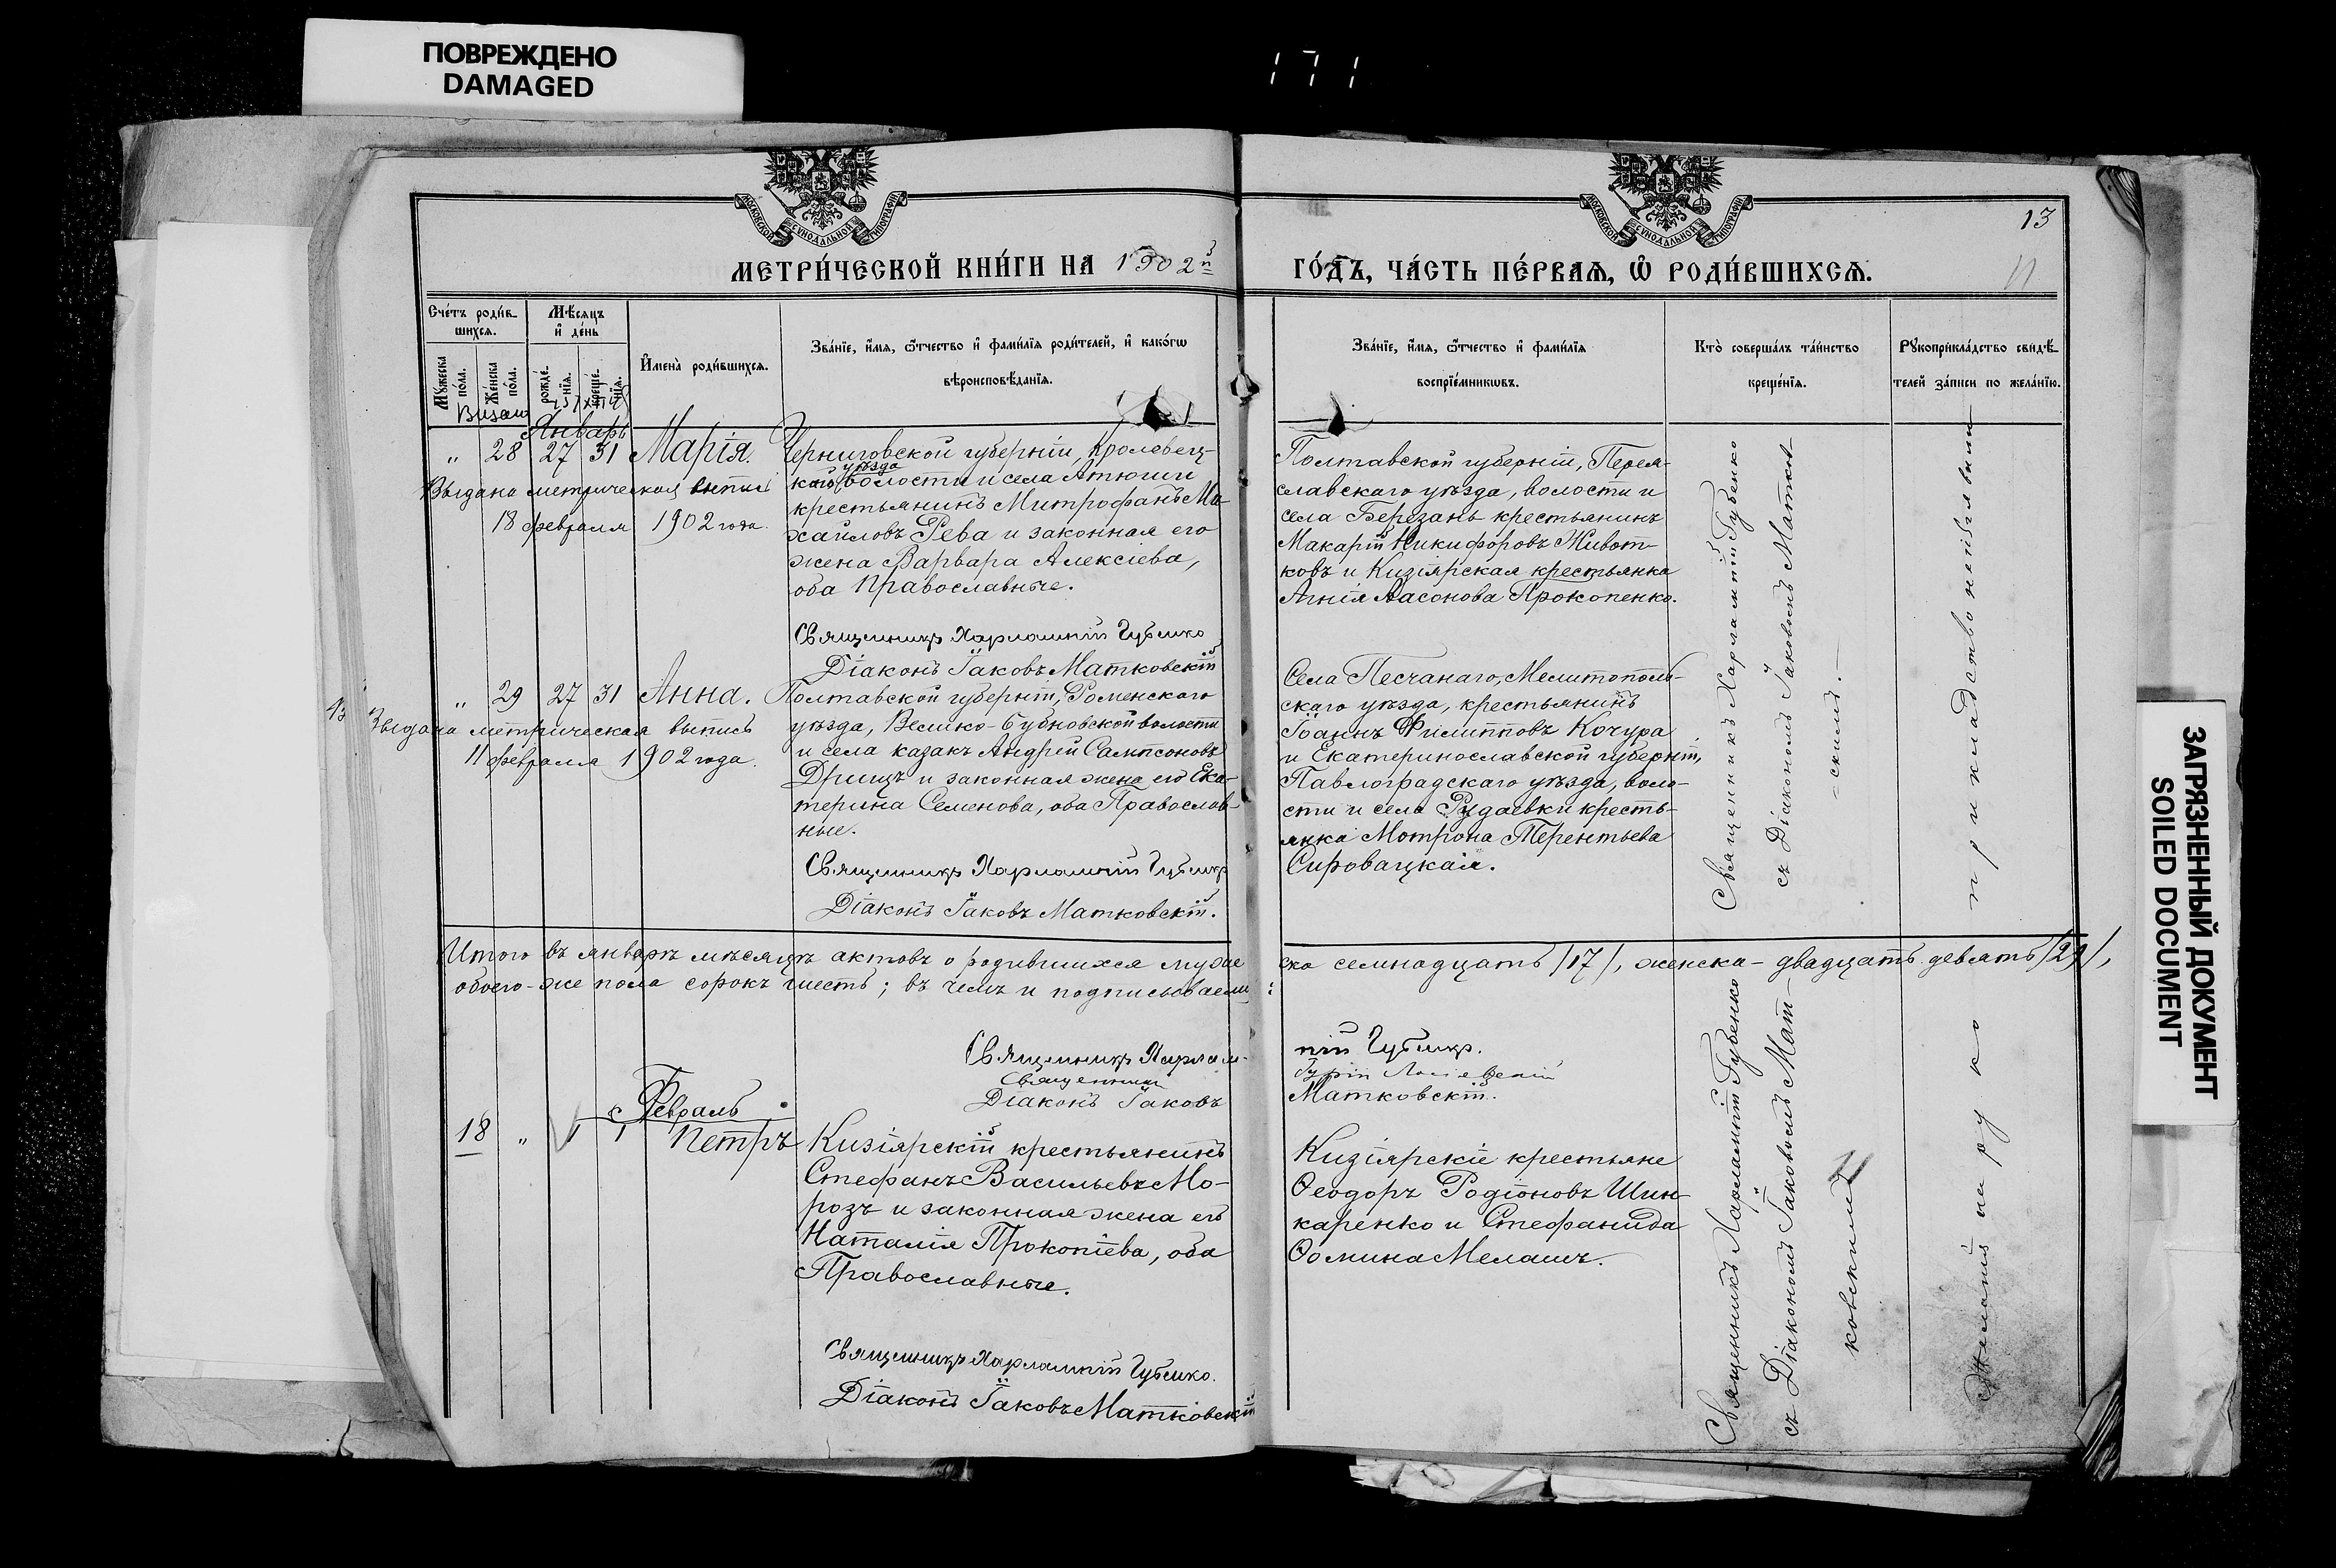 ПОВРЕЖДЕНО
DAMAGED
171
13
МОСКОВСКОЙ СѴНОДАЛЬНОЙ ТИПОГРАФІИ
МОСКОВСКОЙ СѴНОДАЛЬНОЙ ТИПОГРАФІИ
МЕТРИ́ЧЕСКОЙ КНИ́ГИ НА 1902й
ГО́ДЪ, ЧА́СТЬ ПЕ́РВАЯ, Ѡ҆ РОДИ́ВШИХСЯ.
Сче́тъ роди́в-
шихся.
Мꙋ́жеска по́ла.
Же́нска по́ла.
Мѣ́сяцъ
и҆ де́нь
рожде́-
нія.
креще́-
нія.
И҆мена̀ роди́вшихся.
Зва́ніе, и҆́мя, ѻ҆́тчество и҆ фами́лія роди́телей, и҆ како́гѡ
вѣроисповѣ́данія.
Зва́ніе, и҆́мя, ѻ҆́тчество и҆ фами́лія
воспріе́мникѡвъ.
Кто̀ соверша́лъ та́инство
креще́нія.
Рꙋкоприкла́дство свидѣ́-
телей за́писи по жела́нію.
Январь
„ 28 27 31 Марія.
Выдана метрическая выпись
18 февраля 1902 года.
Черниговской губерніи, Кролевец-
каго уѣзда волости и села Атюши
крестьянинъ Митрофанъ Ми-
хайловъ Рева и законная его
жена Варвара Алексіева,
оба Православные.
Священникъ Харлампій Губенко
Діаконъ Іаковъ Матковскій
Полтавской губерніи, Перея-
славскаго уѣзда, волости и
села Березань крестьянинъ
Макарій Никифоровъ Живот-
ковъ и Кизіярская крестьянка
Агнія Іасонова Прокопенко.
„ 29 27 31 Анна.
Выдана метрическая выпись
11 февраля 1902 года.
Полтавской губерніи, Роменскаго
уѣзда, Велико-Бубновской волости
и села казакъ Андрей Сампсоновъ
Дрищъ и законная жена его Ека-
терина Семенова, оба Православ-
ные.
Священникъ Харлампій Губенко
Діаконъ Іаковъ Матковскій.
Села Песчанаго, Мелитополь-
скаго уѣзда, крестьянинъ
Іоаннъ Филипповъ Кочура
и Екатеринославской губерніи,
Павлоградскаго уѣзда, воло-
сти и села Рудаевки кресть-
янка Мотрона Терентьева
Сировацкая.
Священникъ Харлампій Губенко
съ Діакономъ Іаковомъ Матков-
-скимъ.-
Итого въ январѣ мѣсяцѣ актовъ о родившихся муже
ска семнадцать /17/, женска - двадцать девять /29/,
обоего-же пола сорокъ шесть; въ чемъ и подписываемся:
Священникъ Харлам-
пій Губенко.
Священникъ
Гурій
Діаконъ Іаковъ
Матковскій.
Февраль
18 „ 1 1 Петръ
Кизіярскій крестьянинъ
Стефанъ Васильевъ Мо-
розъ и законная жена его
Наталія Прокопіева, оба
Православные.
Священникъ Харлампій Губенко.
Діаконъ Іаковъ Матковскій
Кизіярскіе крестьяне
Ѳеодоръ Родіоновъ Шин-
каренко и Стефанида
Ѳомина Мелашъ.
Священникъ Харлампій Губенко
съ Діакономъ Іаковомъ Мат-
ковскимъ
Желаній на рукоприкладство неизъявили
ЗАГРЯЗНЕННЫЙ ДОКУМЕНТ
SOILED DOCUMENT